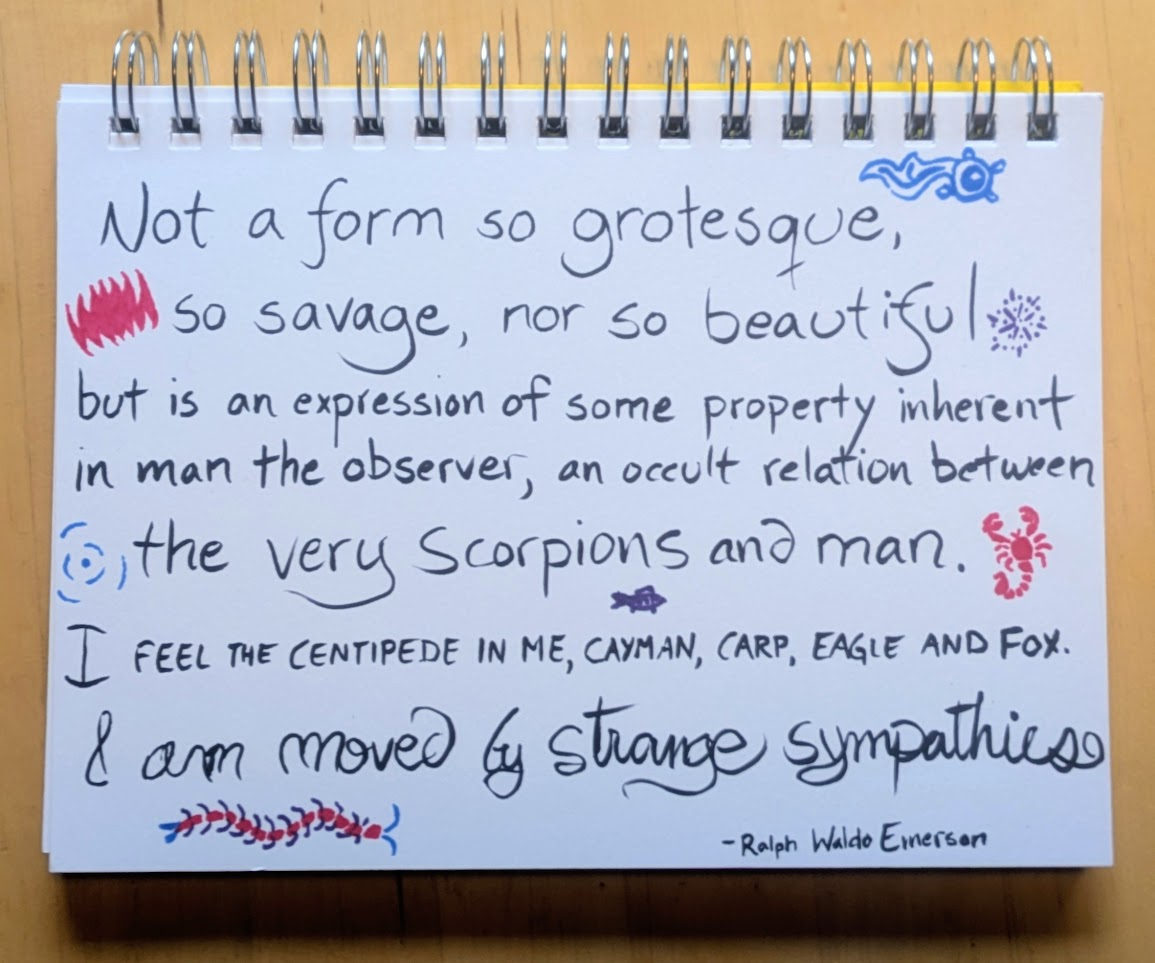 Not a form so grotesque,
so savage, nor so beautiful
but is an expression of some property inherent
in man the observer, an occult relation between
the very scorpions and man.
I FEEL THE CENTIPEDE IN ME, CAYMAN, CARP, EAGLE AND FOX.
I am moved by strange sympathies
-Ralph Waldo Emerson